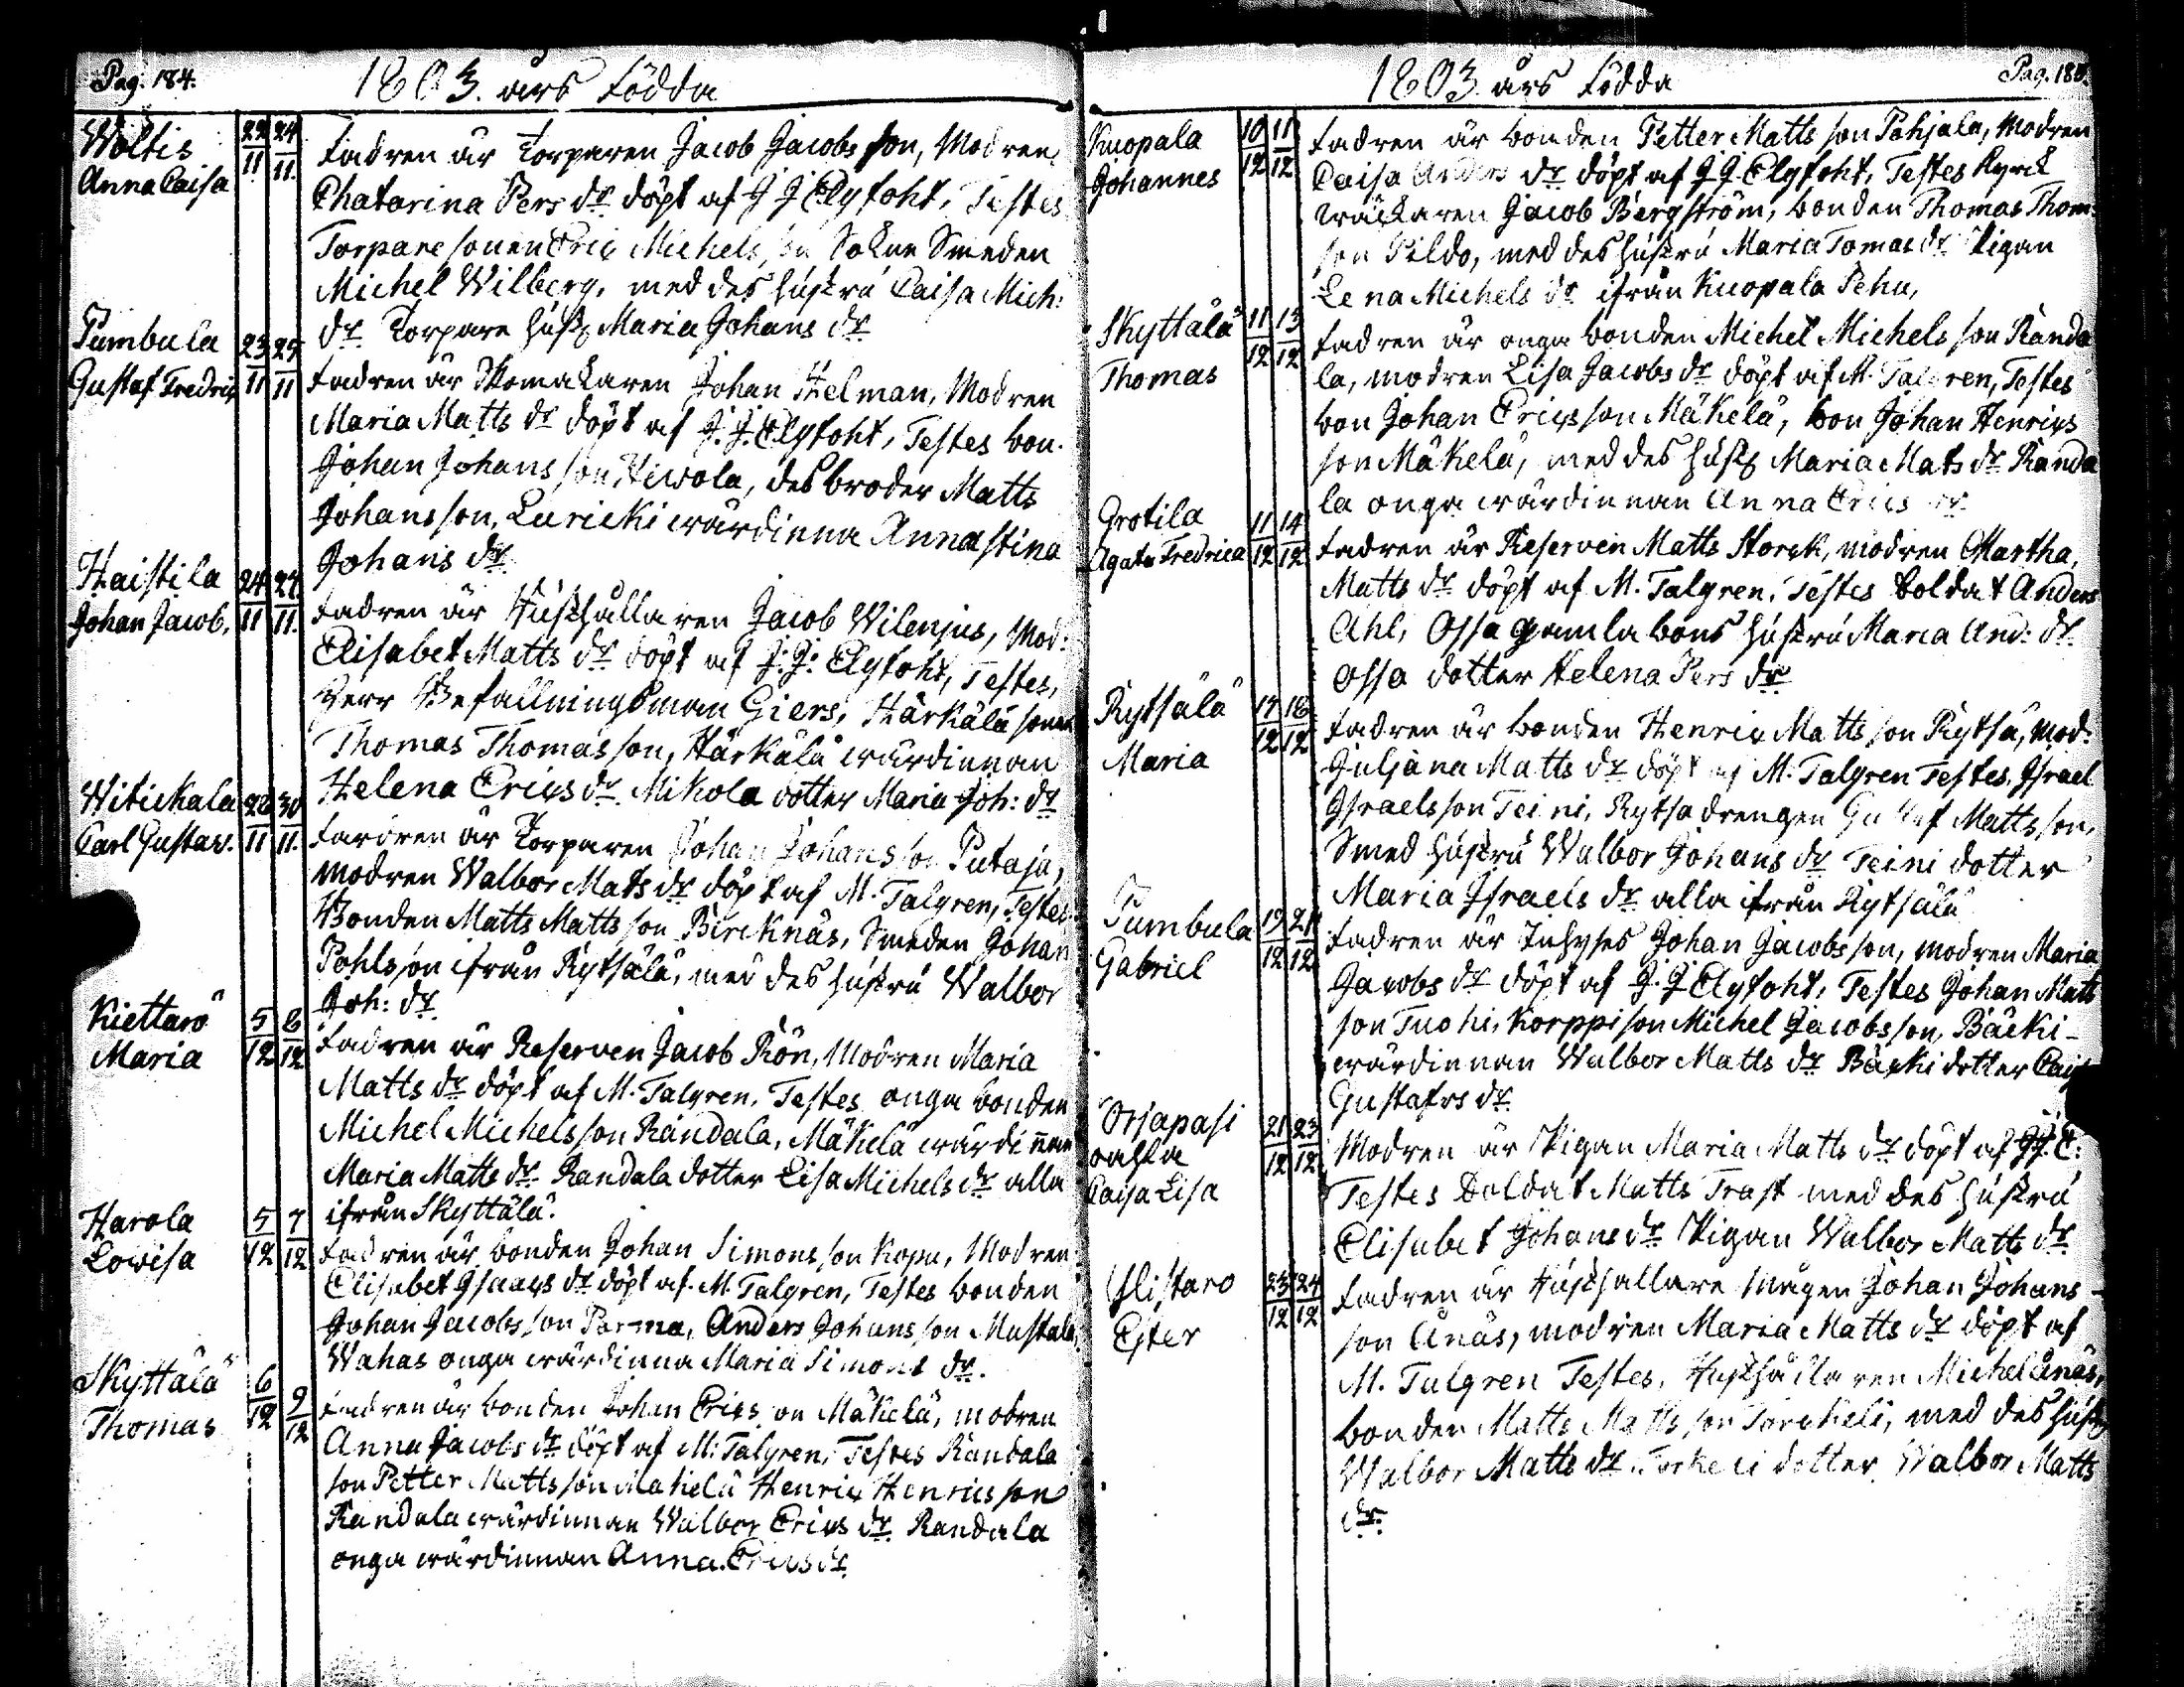 Pag. 184.
1803. års Födda
Woltis
Anna Caisa
22/11 24/11.
Fadren är Torparen Jacob Jacobs son, Modren
Chatarina Pers dr döpt af J J Elyfoht, Testes
Torpare sonen Eric Michels son Sokne Smeden
Michel Wilberg, med des hustru Caisa Mich:
dr Torpare hust Maria Johans dr
Tumbula
Gustaf Fredric
23/11 25/11
Fadren är Skomakaren Johan Helman, Modren
Maria Matts dr döpt af J. J. Elyfoht, Testes bon.
Johan Johans son Hewola, des broder Matts
Johansson, Luricki wärdinna Anna Stina
Johans dr
Haistila
Johan Jacob,
24/11 27/11.
Fadren är Huskhållaren Jacob Wilenius, Mod:
Elisabet Matts dr döpt af J: J: Elyfoht, Testes,
Herr Befallningsman Giers, Härkälä sonen
Thomas Thomas son, Härkälä wärdinnan
Helena Erics dr Mikola dotter Maria Joh: dr
Witickala
Carl Gustav.
28/11 30/11.
Fardren är Torparen Johan Johans son Putaja,
modren Walbor Mats dr döpt af M. Talgren, Testes
Bonden Matts Matts son Bircknäs, Smeden Johan
Pohlsson ifrån Rytsälä, med des hustru Walbor
Joh: dr
Kiettarö
Maria
5/12 6/12
Fadren är Reserven Jacob Rön, Modren Maria
Matts dr döpt af M. Talgren, Testes onga bonden
Michel Michelsson Randala, Mäkelä wärdinnan
Maria Matts dr Randala dotter Lisa Michels dr alla
ifrån Skyttälä.
Harola
Lowisa
5/12 7/12
Fadren är bonden Johan Simons son Kopu, Modren
Elisabet Isaacs dr döpt af M. Talgren, Testes bonden
Johan Jacobs son Parma, Anders Johans son Mustala,
Wahas onga wärdinna Maria Simons dr.
Skyttälä
Thomas
6/12 9/12
Fadren är bonden Johan Erics son Mäkelä, modren
Anna Jacobs dr döpt af M: Talgren, Testes Randala
son Petter Matts son Mäkelä Henric Henrics son
Randala wärdinnan Walbor Erics dr Randala
onga wärdinnan Anna Erics dr
1803 års Födda
Kuopala
Johannes
10/12 11/12
Fadren är bonden Petter Matts son Pohjala, Modren
Caisa Anders dr döpt af J J Elyfoht, Testes Kyrck
wäckaren Jacob Bergström, bonden Thomas Thom:
son Pildo, med des hustru Maria Tomas dr Pigan
Lena Michels dr ifrån Kuopala Pehu,
Skyttälä
Thomas
11/12 13/12
Fadren är onga bonden Michel Michels son Randa
la, modren Lisa Jacobs dr döpt af M. Talgren, Testes
bon Johan Erics son Mäkelä, bon Johan Henrics
son Mäkelä, med des hust Maria Mats dr Randa
la onga wärdinnan Anna Erics dr.
Grotila
Agata Fredrica
11/12 14/12
Fadren är Reserven Matts Storck, modren Martha,
Matts dr döpt af M. Talgren, Testes Soldat Anders
Ahl, Ossa gamla bons hustru Maria And: dr
Ossa dotter Helena Pers dr
Rytsälä
Maria
17/12 18/12
Fadren är bonden Henric Matts son Rytsä, mod:
Juljana Matts dr döpt af M. Talgren Testes, Israel
Israelsson Teini, Rytsa drengen Gustaf Matts son,
Smed hustru Walbor Johans dr Teini dotter
Maria Israels dr alla ifrån Rytsälä
Tumbula
Gabriel
19/12 21/12
Fadren är Inhyses Johan Jacobs son, modren Maria
Jacobs dr döpt af J. J Elyfoht, Testes Johan Matts
son Tuohi, Korppi son Michel Jacobs son, Bäcki-
wärdinnan Walbor Matts dr Bäcki dotter
Gustafvs dr
Orjapasi
Caisa Lisa
21/12 23/12
Modren är Pigan Maria Matts dr döpt af J J: E:
Testes Soldat Matts Trast med des hustru
Elisabet Johans dr Pigan Walbor Matts dr
Ylistaro
Ester
23/12 24/12
Fadren är Huskhållare mågen Johan Johans-
son Änäs, modren Maria Matts dr döpt af
M. Talgren Testes, Huskhållaren Michel Änäs,
bonden Matts Matts son Torckeli, med des hust
Walbor Matts dr Torkeli dotter Walbor Matts
dr.